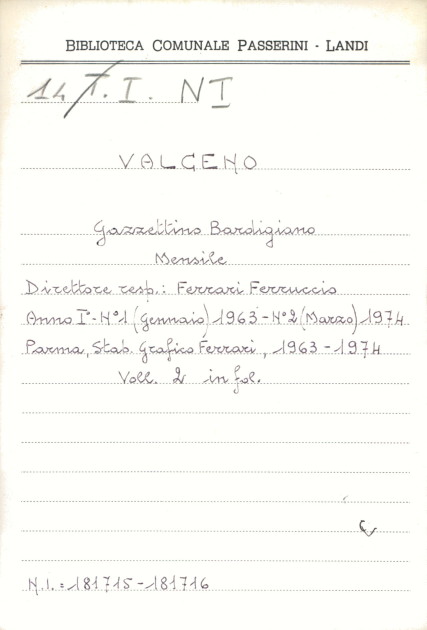 BIBLIOTECA COMUNALE PASSERINI - LANDI
14 T. I. NI
VALCENO
Gazzettino Bardigiano
Mensile
Direttore resp.: Ferrari Ferruccio
Anno I°- N°1 (Gennaio) 1963 - N°2 (Marzo) 1974
Parma, Stab. Grafico Ferrari, 1963 - 1974
Voll. 2 in fol.
N.I. = 181715 - 181716